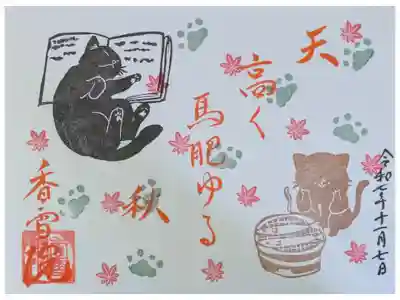 天
高く
馬肥ゆる
秋
香
令和七年十一月七日